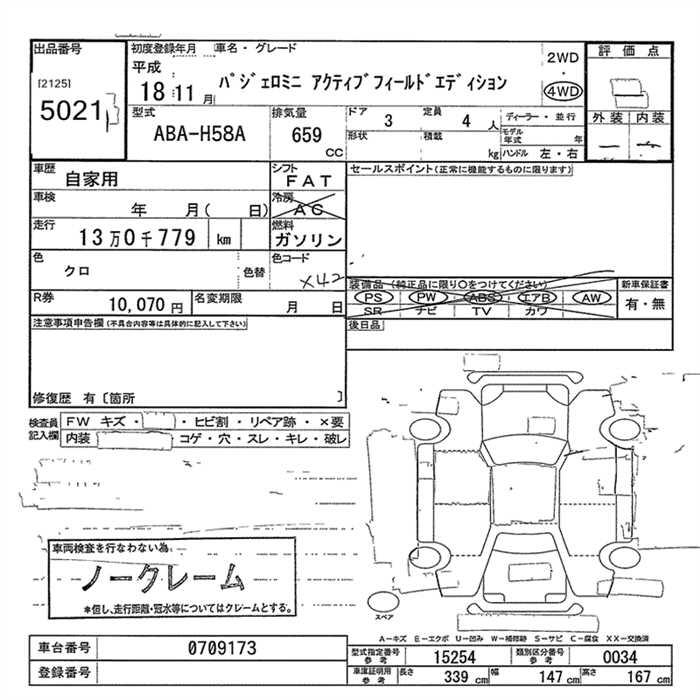 出品番号
[2125]
5021
初度登録年月 車名・グレード
平成
18 11 月
パジェロミニ アクティブフィールドエディション
2WD
・
4WD
評価点
外装 内装
型式
ABA-H58A
排気量
659
CC
ドア
3
定員
4 人
形状
積載
kg
ディーラー・並行
モデル
年式
年
ハンドル 左・右
車歴
自家用
シフト
FAT
セールスポイント(正常に機能するものに限ります)
車検
年 月( 日)
冷房
AC
走行
13万0千779 km
燃料
ガソリン
色
クロ
色替
色コード
X42
装備品(純正品に限り○をつけてください)
PS PW ABS エアB AW
SR ナビ TV カワ
新車保証書
有・無
R券
10,070 円
名変期限
月 日
後日品
注意事項申告欄(不具合内容等は具体的に記入して下さい)
修復歴 有〔箇所 〕
検査員
記入欄
FW キズ・ ・ヒビ割・リペア跡・×要
内装 ・コゲ・穴・スレ・キレ・破レ
車両検査を行なわない為、
ノークレーム
*但し、走行距離・冠水等についてはクレームとする。
スペア
A-キズ E-エクボ U-凹み W-補修跡 S-サビ C-腐食 XX-交換済
車台番号
0709173
登録番号
型式指定番号
参考
15254
類別区分番号
参考
0034
車庫証明用
参考
長さ 339 cm 幅 147 cm 高さ 167 cm